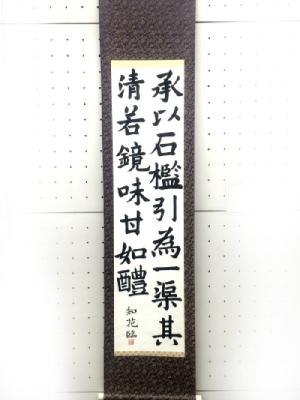 承以石檻引為一渠其
清若鏡味甘如醴
知苑臨